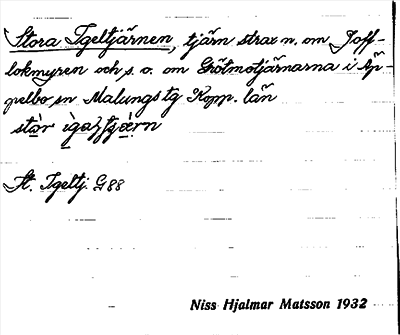 Stora Igeltjärnen, tjärn strax n. om Joff-
lokmyren och s. o. om Grötmotjärnarna i Äp-
pelbo sn Malungs tg Kopp. län
St. Igeltj. G 88
Niss Hjalmar Matsson 1932